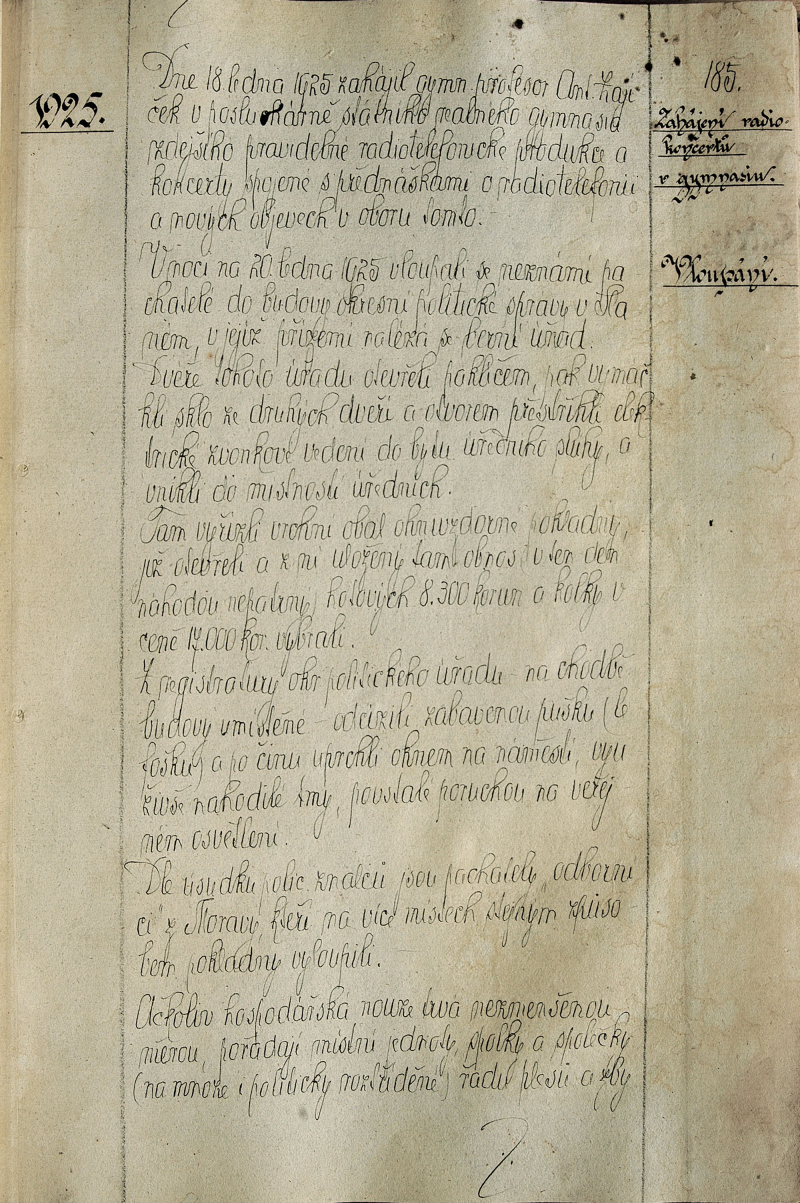 1925.
185.
Dne 18. ledna 1925 zahájil gymn. profesor Ant. Háj-
ček v poslu chárně státního realného gymnasia
zdejšího pravidelné radiotelefonické produkce a
koncerty spojené s přednáškami o radiotelefonii
a nových objevech v oboru tomto.
Zahájení radio-
koncertů
v gymnasiu.
V noci na 20. ledna 1925 vloupali se neznámí pa
chatelé do budovy okresní politické správy v Sla
ném, v jejíž přízemí nalézá se berní úřad.
Vloupání.
Dveře tohoto úřadu otevřeli paklíčem, pak vymač
kli sklo ze druhých dveří a otvorem přestřihli elek
trické zvonkové vedení do bytu úředního sluhy, a
vnikli do místností úředních.
Tam vyřízli vrchní obal ohnivzdorné pokladny,
již otevřeli a z ní uložený tam obnos v ten den
náhodou nepatrný, hotových 8.300 korun a kolky v
ceně 17.000 kor. vybrali.
Z registratury okr. politického úřadu - na chodbě
budovy umístěné - odcizili zabavenou pušku (te
rošku) a po činu uprchli oknem na náměstí, vyu
živše nahodilé tmy, povstalé poruchou na veřej
ném osvětlení.
Dle úsudku polic. znalců jsou pachately „odborní
ci" z Moravy, kteří na více místech stejným způso
bem pokladny vyloupili.
Ačkoliv hospodářská nouze trvá nezmenšenou
měrou, pořádají místní jednoty, spolky a společky
(na mnoze i politicky roztříděné) řadu plesů a zby